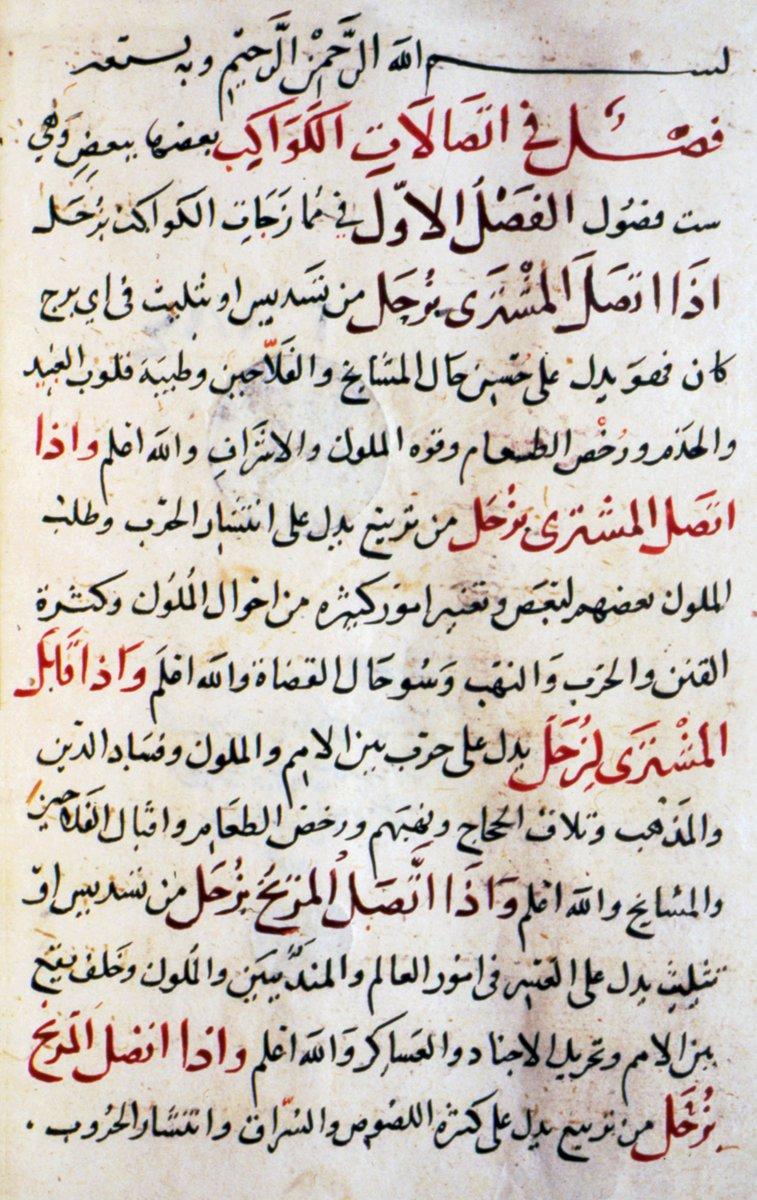 بسم الله الرَّحمٰن الرَّحيم وبه نستعين
فصل في اتصَالَاتِ الكَوَاكِبِ بعضها ببعضٍ وَهي
ست فصُول الفَصْلُ الاوّل في مُمازَجَاتِ الكواكب بزُحَل
اذَا اتصَلَ المشْتَرَى بزُحَل من تسَديس او تثليث في اي برج
كان فهوَ يدل على حُسن حَال المشَايخ والفَلّاحين وطيبَة قلوب العَبيد
والخدَم ورُخْص الطعَام وقوه الملوك والاشرَافِ والله اعلم واذا
اتصَل المشترى بزُحَل من تربيع يدل على انتشَار الحرَب وطلب
الملوك بعضهم لبعَض وتغيير امور كثيره من احْوال المُلُوك وكثرة
الفتن والحرَب وَالنهَب وَسُو حَال القضَاة والله اعلَم وَاذا قَابَلَ
المشْتَرَى لِزُحَلَ يدل على حرَب بين الامم والملوك وفسَاد الدّين
والمَذهب وتلاف الحجَاج ونهبَهم ورخص الطعَام واقبَال الفَلاحين
والمشايخ والله اعلم وَاذَا اتَّصَلَ المرّيخُ بزُحَل من تسَديس اوْ
تثليث يدل على التغيير في امُور العالم والمتدَيِّنين والملوك وخلف يقع
بين الامم وتحريك الاجناد والعسَاكر وَالله اعلم واذا اتصَل المريخ
بزُحَل من تربيع يدل على كثرة اللصُوص والسُرّاق وانتشَار الحُروب .